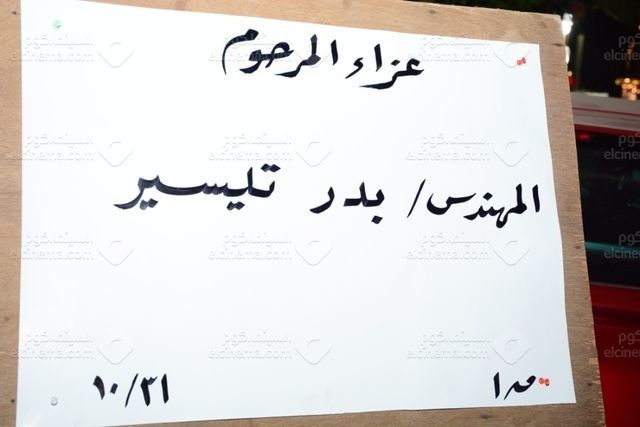 عزاء المرحوم
المهندس/ بدر تليسير
١٠/٣١
السينما.كوم
elcinema.com